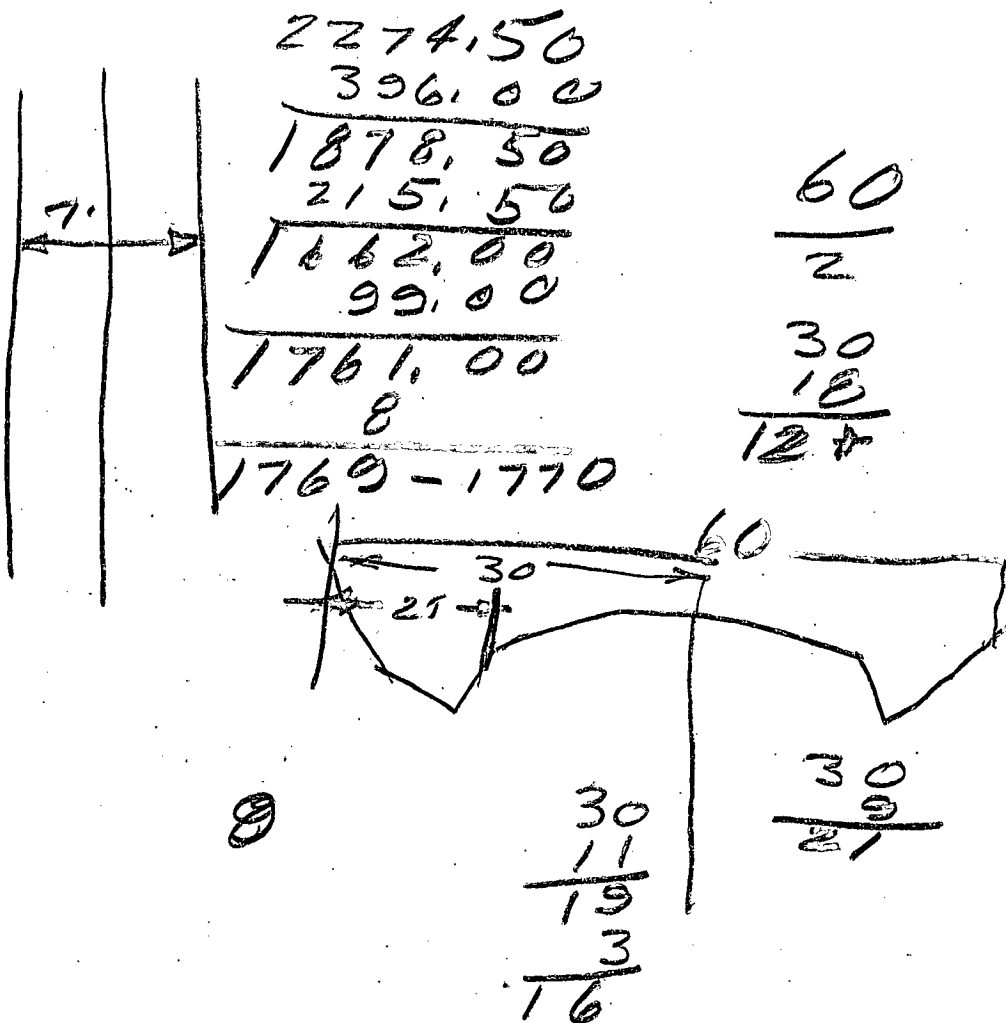 2274.50
396.00
1878.50
215.50
1662.00
99.00
1761.00
8
1769-1770
7.
60
2
30
18
12
60
30
21
8
30
11
19
3
16
30
9
21